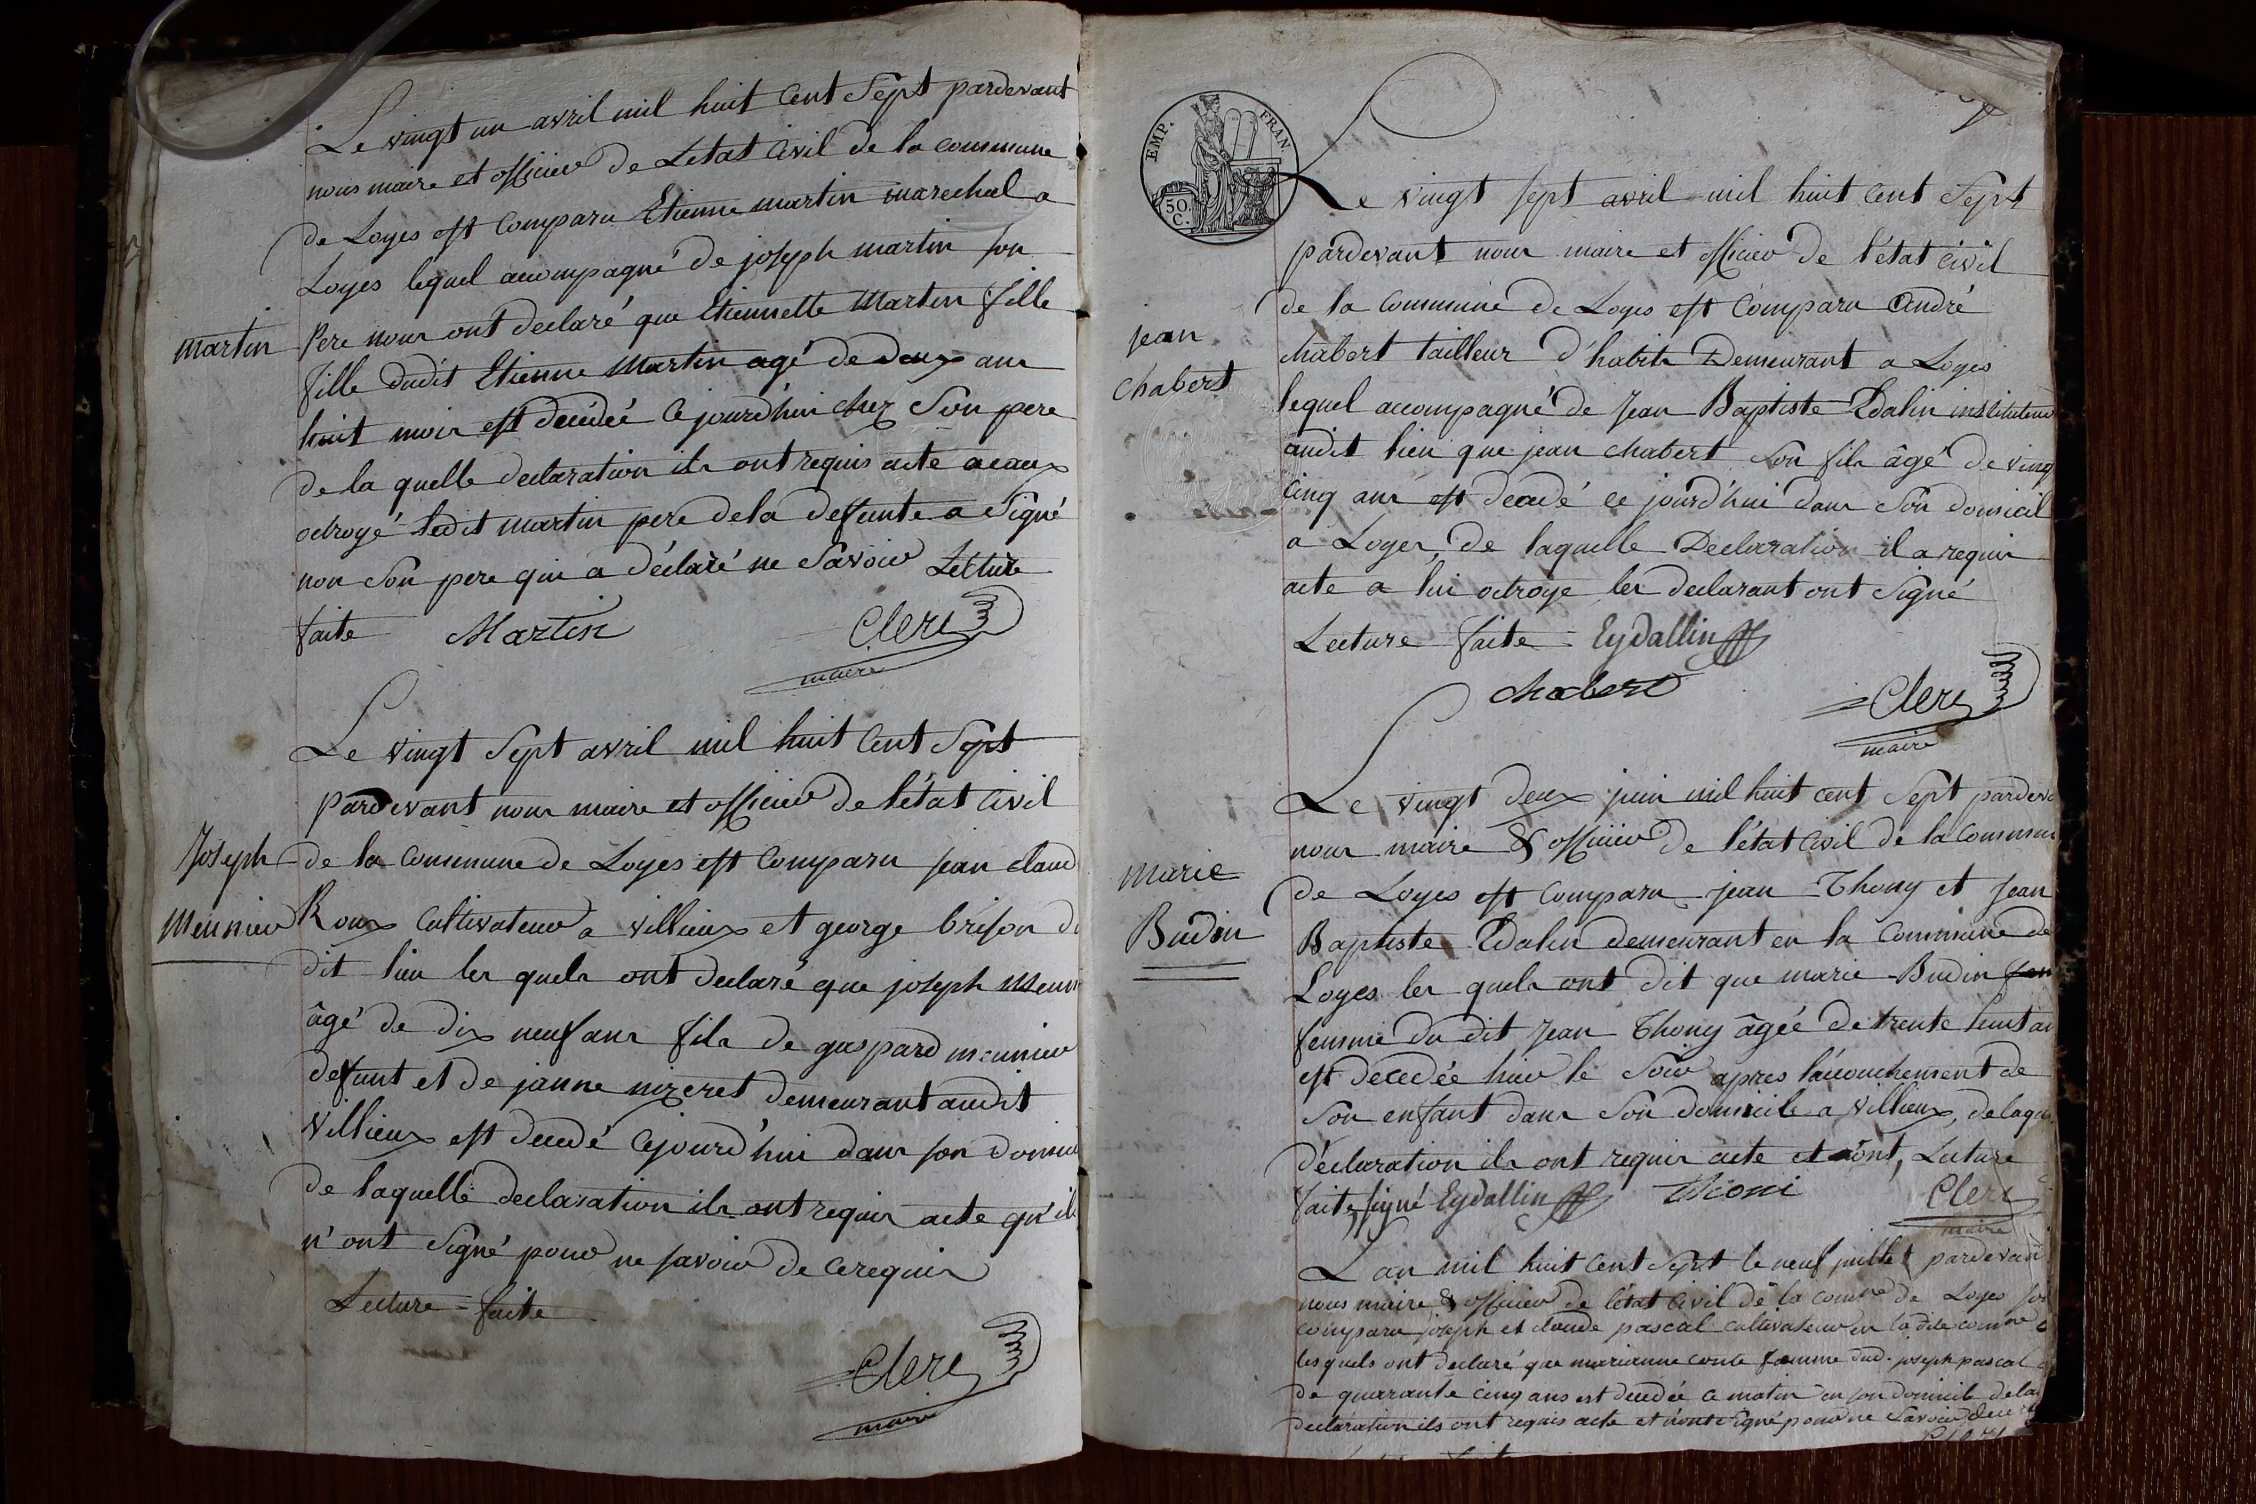 Le vingt un avril mil huit cent Sept pardevant
nous maire et officier de Letat Civil de la commune
de Loyes est Comparu Etienne martin marechal a
Loyes lequel accompagné de joseph martin son
martin
Pere nous ont declaré que Etiennette Martin fille
fille dudit Etienne Martin agé de deux ans
huit mois est decédée Cejourd'hui chez Son pere
de la quelle declaration ils ont requis acte a eaux
octroyé ledit martin pere dela defunte a Signé
non Son pere qui a déclaré ne Savoir Lecture
faite Martin Clerc
maire
Le vingt Sept avril mil huit Cent Sept
pardevant nous maire et officier de l'état Civil
Joseph
de la Commune de Loyes est Comparu jean claud
Meunier
Roux Cultivateur a villieux et george brison du
dit lieu les quels ont declaré que joseph Meun
âgé de dix neuf ans fils de gaspard meunier
defunt et de janne nizeret demeurant audit
Villieux est decedé Cejourd'hui dans son domici
de laquelle declaration ils ont requis acte qu'ils
n'ont Signé pour ne savoir de cerequis
Lecture faite
Clerc
maire
EMP. FRAN.
50 C.
Le vingt sept avril mil huit Cent Sept
pardevant nous maire et officier de l'état Civil
de la Commune de Loyes est Comparu André
jean
chabert
chabert tailleur d'habits Demeurant a Loyes
lequel accompagné de Jean Baptiste Edalin instituteur
audit lieu que jean chabert Son fils âgé de ving
cinq ans est decedé ce jourd'hui dans Son domicil
a Loyes, de laquelle Declaration il a requis
acte a lui octroye les declarant ont Signé
Lecture faite Eydallin
chabert Clerc
maire
Le vingt deux juin mil huit cent Sept pardeva
nous maire & officier de l'état Civil de la Commun
marie
Budin
de Loyes est Comparu jean Thony et Jean
Baptiste Edalin demeurant en la Commune de
Loyes les quels ont dit que marie Budin fem
femme du dit Jean Thony âgée de trente huit an
est decedée hier le Soir apres l'acouchement de
Son enfant dans Son domicile a Villieux, delaqu
déclaration ils ont requis acte et ont, Lecture
faite, signé Eydallin Thoni Clerc
maire
Lan mil huit Cent Sept le neuf juillet pardevan
nous maire & officier de l'état Civil de la comne de Loyes
comparu joseph et claude pascal cultivateur en la dite comne
les quels ont declaré que marianne conte femme dud. joseph pascal
de quarante cinq ans est decedée ce matin en son domicile dela
declaration ils ont requis acte et n'ont signé pour ne Savoir